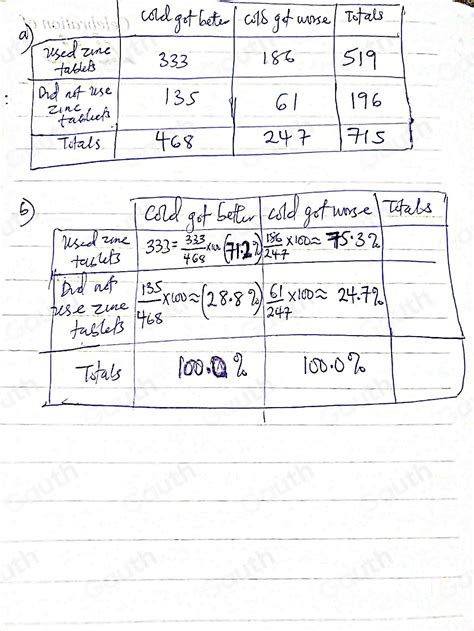 a) cold got better cold got worse Totals
used zinc tablets 333 186 519
Did not use zinc tablets 135 61 196
Totals 468 247 715
b) cold got better cold got worse Totals
Used zinc tablets 333 = 333/468 x100 (71.2%) 186/247 x100 ≈ 75.3%
Did not use zinc tablets 135/468 x100 ≈ (28.8%) 61/247 x100 ≈ 24.7%
Totals 100.0% 100.0%